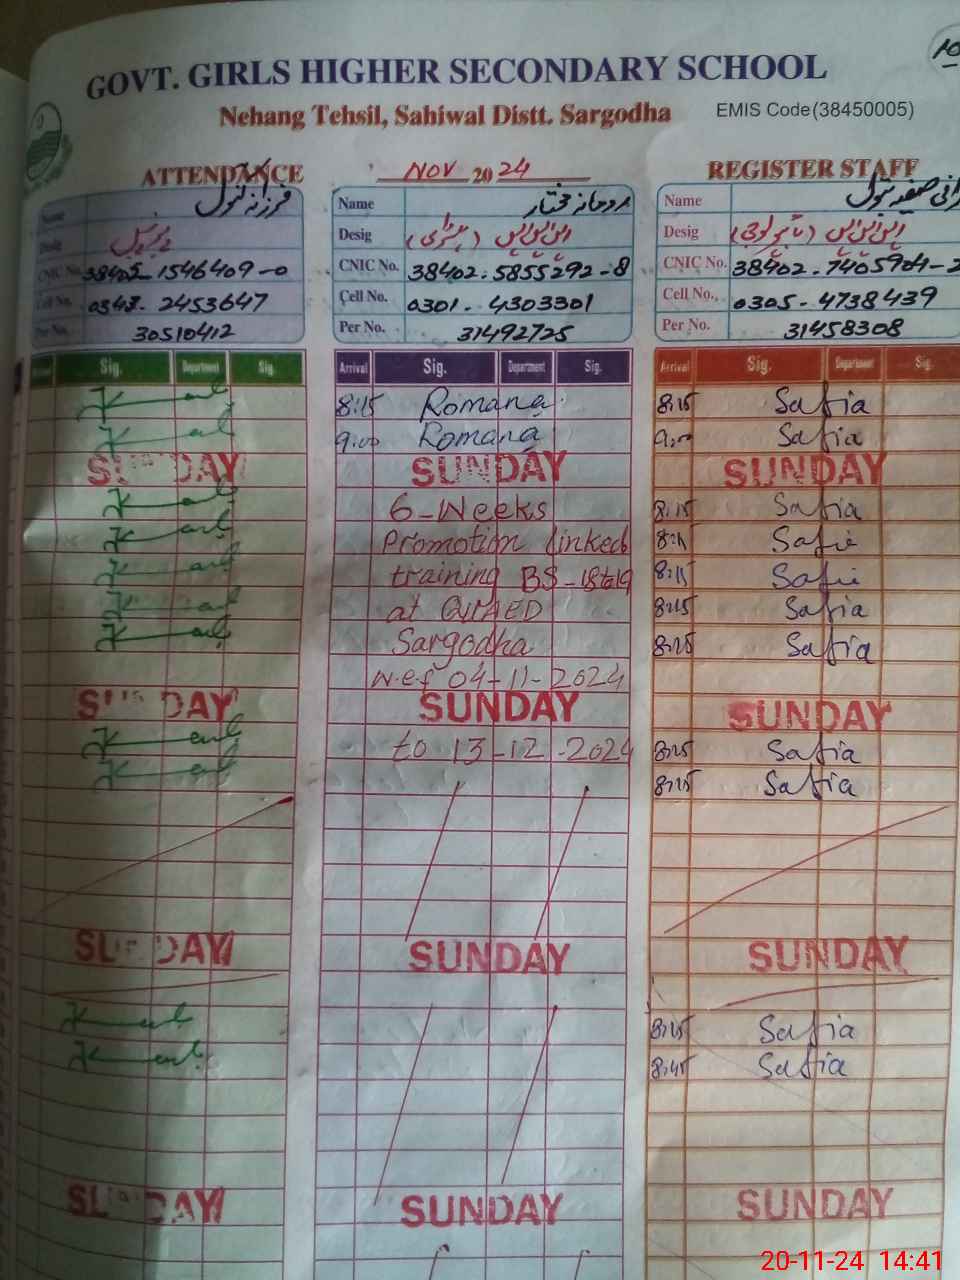 GOVT. GIRLS HIGHER SECONDARY SCHOOL
Nehang Tehsil, Sahiwal Distt. Sargodha
EMIS Code (38450005)
ATTENDANCE NOV 2024 REGISTER STAFF
Name
Desig پرنسپل
CNIC No. 38402-1546409-0
Cell No. 0348-2453647
Per No. 30510412
Name رومانہ مختار
Desig ایس ایس ایس
CNIC No. 38402-5855292-8
Cell No. 0301-4303301
Per No. 31492725
Name
Desig ایس ایس ایس
CNIC No. 38402-7405904-2
Cell No. 0305-4738439
Per No. 31458308
Sig. Department Sig.
Arrival Sig. Department Sig.
Arrival Sig. Department Sig.
8:15 Romana 8:15 Safia
9:00 Romana 9:00 Safia
SUNDAY SUNDAY SUNDAY
6-Weeks 8:15 Safia
Promotion linked Safia
training BS-18to19 8:15 Safia
at QAED 8:15 Safia
Sargodha 8:15 Safia
w.e.f 04-11-2024
SUNDAY SUNDAY SUNDAY
to 13-12-2024 8:15 Safia
8:15 Safia
SUNDAY SUNDAY SUNDAY
8:15 Safia
8:45 Safia
SUNDAY SUNDAY SUNDAY
20-11-24 14:41